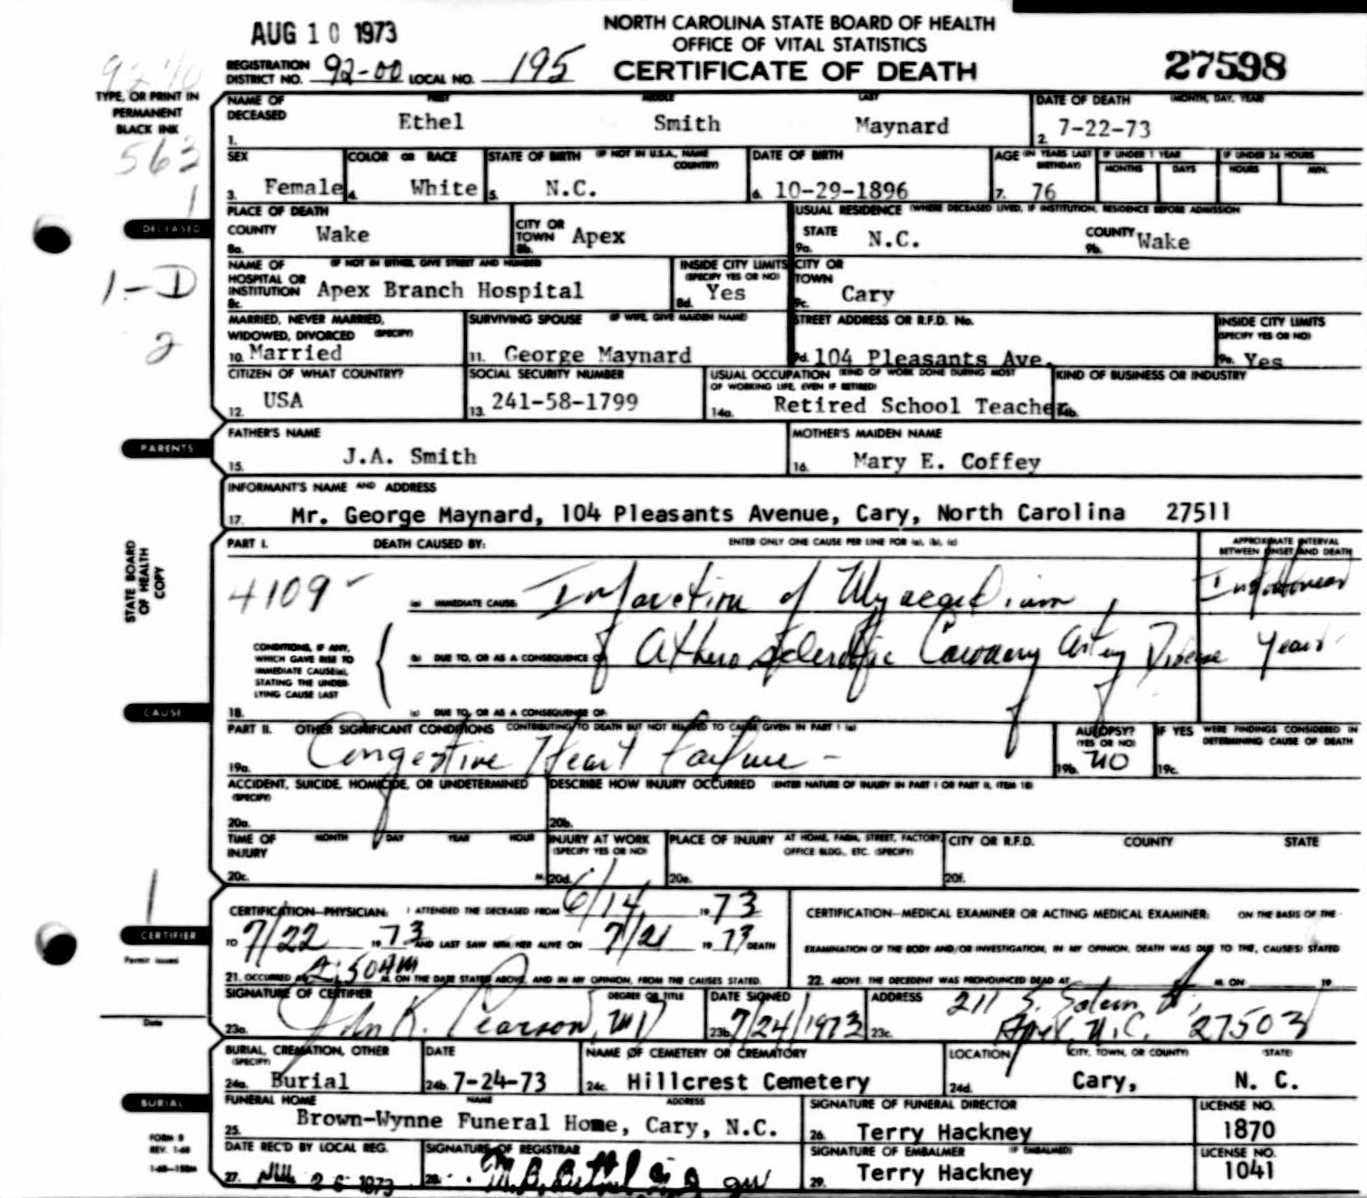 AUG 10 1973
NORTH CAROLINA STATE BOARD OF HEALTH
OFFICE OF VITAL STATISTICS
CERTIFICATE OF DEATH
27598
REGISTRATION DISTRICT NO. 92-00 LOCAL NO. 195
TYPE, OR PRINT IN
PERMANENT
BLACK INK
563
1
DECEASED
1-D
2
NAME OF DECEASED FIRST MIDDLE LAST DATE OF DEATH (MONTH, DAY, YEAR)
1. Ethel Smith Maynard 2. 7-22-73
SEX COLOR OR RACE STATE OF BIRTH (IF NOT IN U.S.A., NAME COUNTRY) DATE OF BIRTH AGE (IN YEARS LAST BIRTHDAY) IF UNDER 1 YEAR MONTHS DAYS IF UNDER 24 HOURS HOURS MIN.
3. Female 4. White 5. N.C. 6. 10-29-1896 7. 76
PLACE OF DEATH USUAL RESIDENCE (WHERE DECEASED LIVED, IF INSTITUTION, RESIDENCE BEFORE ADMISSION
COUNTY 8a. Wake CITY OR TOWN 8b. Apex STATE 9a. N.C. COUNTY 9b. Wake
NAME OF HOSPITAL OR INSTITUTION (IF NOT IN EITHER, GIVE STREET AND NUMBER) INSIDE CITY LIMITS (SPECIFY YES OR NO) CITY OR TOWN
8c. Apex Branch Hospital 8d. Yes 9c. Cary
MARRIED, NEVER MARRIED, WIDOWED, DIVORCED (SPECIFY) SURVIVING SPOUSE (IF WIFE, GIVE MAIDEN NAME) STREET ADDRESS OR R.F.D. No. INSIDE CITY LIMITS (SPECIFY YES OR NO)
10. Married 11. George Maynard 9d. 104 Pleasants Ave. 9e. Yes
CITIZEN OF WHAT COUNTRY? SOCIAL SECURITY NUMBER USUAL OCCUPATION (KIND OF WORK DONE DURING MOST OF WORKING LIFE, EVEN IF RETIRED) KIND OF BUSINESS OR INDUSTRY
12. USA 13. 241-58-1799 14a. Retired School Teacher 14b.
PARENTS
FATHER'S NAME MOTHER'S MAIDEN NAME
15. J.A. Smith 16. Mary E. Coffey
INFORMANT'S NAME AND ADDRESS
17. Mr. George Maynard, 104 Pleasants Avenue, Cary, North Carolina 27511
STATE BOARD
OF HEALTH
COPY
PART I. DEATH CAUSED BY: ENTER ONLY ONE CAUSE PER LINE FOR (a), (b), (c) APPROXIMATE INTERVAL BETWEEN ONSET AND DEATH
4109
(a) IMMEDIATE CAUSE: Infarction of Myocardium
CONDITIONS, IF ANY,
WHICH GAVE RISE TO
IMMEDIATE CAUSE(a),
STATING THE UNDER-
LYING CAUSE LAST
(b) DUE TO, OR AS A CONSEQUENCE OF: Atherosclerotic Coronary Artery Disease Years
CAUSE
18. (c) DUE TO, OR AS A CONSEQUENCE OF:
PART II. OTHER SIGNIFICANT CONDITIONS CONTRIBUTING TO DEATH BUT NOT RELATED TO CAUSE GIVEN IN PART I (a) AUTOPSY? (YES OR NO) IF YES WERE FINDINGS CONSIDERED IN DETERMINING CAUSE OF DEATH
19a. Congestive Heart Failure - 19b. NO 19c.
ACCIDENT, SUICIDE, HOMICIDE, OR UNDETERMINED (SPECIFY) DESCRIBE HOW INJURY OCCURRED (ENTER NATURE OF INJURY IN PART I OR PART II, ITEM 18)
20a. 20b.
TIME OF INJURY MONTH DAY YEAR HOUR INJURY AT WORK (SPECIFY YES OR NO) PLACE OF INJURY AT HOME, FARM, STREET, FACTORY, OFFICE BLDG., ETC. (SPECIFY) CITY OR R.F.D. COUNTY STATE
20c. M. 20d. 20e. 20f.
1
CERTIFIER
Permit issued
Date
CERTIFICATION—PHYSICIAN: I ATTENDED THE DECEASED FROM 6/14, 19 73
TO 7/22 19 73 AND LAST SAW HIM/HER ALIVE ON 7/21 19 73 DEATH
21. OCCURRED AT 2:50AM M. ON THE DATE STATED ABOVE, AND IN MY OPINION, FROM THE CAUSES STATED.
CERTIFICATION—MEDICAL EXAMINER OR ACTING MEDICAL EXAMINER: ON THE BASIS OF THE
EXAMINATION OF THE BODY AND/OR INVESTIGATION, IN MY OPINION, DEATH WAS DUE TO THE, CAUSE(S) STATED
22. ABOVE. THE DECEDENT WAS PRONOUNCED DEAD AT M. ON 19
SIGNATURE OF CERTIFIER DEGREE OR TITLE DATE SIGNED ADDRESS
23a. John K. Pearson, MD 23b. 7/24/1973 23c. 211 S. Salem St,
Apex, N.C. 27503
BURIAL, CREMATION, OTHER (SPECIFY) DATE NAME OF CEMETERY OR CREMATORY LOCATION (CITY, TOWN, OR COUNTY) (STATE)
24a. Burial 24b. 7-24-73 24c. Hillcrest Cemetery 24d. Cary, N. C.
BURIAL
FUNERAL HOME NAME ADDRESS SIGNATURE OF FUNERAL DIRECTOR LICENSE NO.
25. Brown-Wynne Funeral Home, Cary, N.C. 26. Terry Hackney 1870
FORM 8
REV. 1-68
DATE REC'D BY LOCAL REG. SIGNATURE OF REGISTRAR SIGNATURE OF EMBALMER (IF EMBALMED) LICENSE NO.
27. JUL 26 1973 28. 29. Terry Hackney 1041